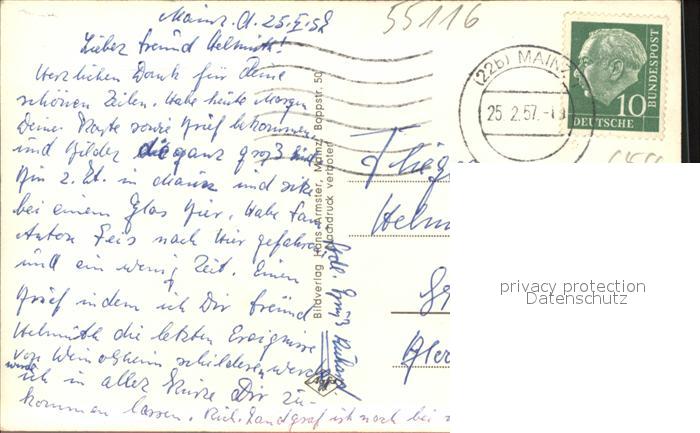 Mainz. d. 25.II.57
55116
Lieber Freund Helmuth!
Herzlichen Dank für Deine
schönen Zeilen. Habe heute Morgen
Deine Karte sowie Brief bekommen
und Bilder die ganz groß sind
Bin z. Zt. in Mainz und sitze
bei einem Glas Bier. Habe
Anton Feis nach hier gefahren
und ein wenig Zeit. Einen
Brief indem ich Dir Freund
Helmuth die letzten Ereignisse
von Weinolsheim schildern werde
werde
ich in aller Kürze Dir zu-
kommen lassen. Rich. Landgraf ist noch bei
Gruß Richard
Bildverlag Hans Armster, Mainz, Boppstr. 50
Nachdruck verboten
(22b) MAINZ
25.2.57.-18
10
DEUTSCHE
BUNDESPOST
Flieg
Helm
privacy protection
Datenschutz